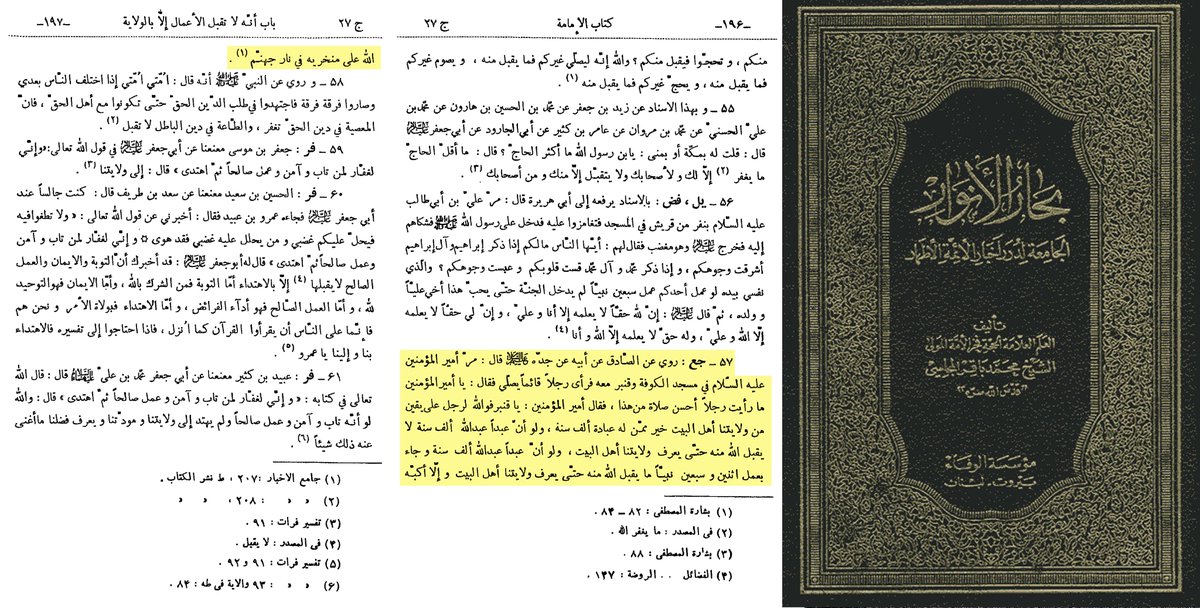 بحار الأنوار
الجامعة لدرر أخبار الأئمة الأطهار
تأليف
العلم العلامة الحجة فخر الأمة المولى
الشيخ محمد باقر المجلسي
"قدس الله سره"
مؤسسة الوفاء
بيروت - لبنان
ج ٢٧
كتاب الإمامة
-١٩٦-
منكم ، و تحجوا فيقبل منكم ؟ والله إنّه ليصلّي غيركم فما يقبل منه ، و يصوم غيركم
فما يقبل منه ، و يحجّ غيركم فما يقبل منه (١) .
٥٥ ـ و بهذا الاسناد عن زيد بن جعفر عن محمد بن الحسين بن هارون عن محمد بن
عليّ الحسنيّ عن محمد بن مروان عن عامر بن كثير عن أبي الجارود عن أبي جعفر عليه السلام
قال : قلت له بمكّة أو بمنى : يابن رسول الله ما أكثر الحاجّ ؟ قال : ما أقلّ الحاجّ
ما يغفر (٢) إلّا لك و لأصحابك ولا يتقبّل إلّا منك و من أصحابك (٣) .
٥٦ ـ يل ، فض : بالاسناد يرفعه إلى أبي هريرة قال : مرّ عليّ بن أبي طالب
عليه السّلام بنفر من قريش في المسجد فتغامزوا عليه فدخل على رسول الله صلى الله عليه وآله فشكاهم
إليه فخرج عليه السلام وهو مغضب فقال لهم : أيّها النّاس مالكم إذا ذكر إبراهيم وآل إبراهيم
أشرقت وجوهكم ، و إذا ذكر محمد و آل محمد قست قلوبكم و عبست وجوهكم ؟ والّذي
نفسي بيده لو عمل أحدكم عمل سبعين نبيّاً لم يدخل الجنّة حتّى يحبّ هذا أخي عليّاً
و ولده ، ثمّ قال عليه السلام : إنّ لله حقّاً لا يعلمه إلّا أنا و عليّ ، و إنّ لي حقّاً لا يعلمه
إلّا الله و عليّ ، وله حقّ لا يعلمه إلّا الله و أنا (٤) .
٥٧ ـ جع : روي عن الصّادق عن أبيه عن جدّه عليهم السلام قال : مرّ أمير المؤمنين
عليه السّلام في مسجد الكوفة وقنبر معه فرأى رجلاً قائماً يصلّي فقال : يا أمير المؤمنين
ما رأيت رجلاً أحسن صلاة من هذا ، فقال أمير المؤمنين : يا قنبر فوالله لرجل على يقين
من ولايتنا أهل البيت خير ممّن له عبادة ألف سنة ، ولو أنّ عبداً عبدالله ألف سنة لا
يقبل الله منه حتّى يعرف ولايتنا أهل البيت ، ولو أنّ عبداً عبدالله ألف سنة و جاء
بعمل اثنين و سبعين نبيّاً ما يقبل الله منه حتّى يعرف ولايتنا أهل البيت و إلّا أكبّه
(١) بشارة المصطفى : ٨٢ ـ ٨٤ .
(٢) فى المصدر : ما يغفر الله .
(٣) بشارة المصطفى : ٨٨ .
(٤) الفضائل . . الروضة : ١٤٧ .
ج ٢٧
باب أنّه لا تقبل الأعمال إلّا بالولاية
-١٩٧-
الله على منخريه في نار جهنّم (١) .
٥٨ ـ و روي عن النبيّ صلى الله عليه وآله أنّه قال : أمّتي أمّتي إذا اختلف النّاس بعدي
وصاروا فرقة فرقة فاجتهدوا في طلب الدّين الحقّ حتّى تكونوا مع أهل الحقّ ، فانّ
المعصية في دين الحقّ تغفر ، والطّاعة في دين الباطل لا تقبل (٢) .
٥٩ ـ فر : جعفر بن موسى معنعنا عن أبي جعفر عليه السلام في قول الله تعالى: «وإنّي
لغفّار لمن تاب و آمن و عمل صالحاً ثمّ اهتدى » قال : إلى ولايتنا (٣) .
٦٠ ـ فر : الحسين بن سعيد معنعنا عن سعد بن طريف قال : كنت جالساً عند
أبي جعفر عليه السلام فجاءه عمرو بن عبيد فقال : أخبرني عن قول الله تعالى : « ولا تطغوا فيه
فيحلّ عليكم غضبي و من يحلل عليه غضبي فقد هوى ۞ و إنّي لغفّار لمن تاب و آمن
وعمل صالحاً ثمّ اهتدى » قال له أبو جعفر عليه السلام : قد أخبرك أنّ التوبة والايمان والعمل
الصالح لا يقبلها (٤) إلّا بالاهتداء أمّا التوبة فمن الشرك بالله ، وأمّا الايمان فهو التوحيد
لله ، و أمّا العمل الصالح فهو أداء الفرائض ، و أمّا الاهتداء فبولاة الأمر و نحن هم
فإنّما على النّاس أن يقرأوا القرآن كما أُنزل ، فاذا احتاجوا إلى تفسيره فالاهتداء
بنا و إلينا يا عمرو (٥) .
٦١ ـ فر : عبيد بن كثير معنعنا عن أبي جعفر محمد بن عليّ عليهما السلام قال : قال الله
تعالى في كتابه : « و إنّي لغفّار لمن تاب و آمن و عمل صالحاً ثمّ اهتدى » قال : والله
لو أنّه تاب و آمن و عمل صالحاً ولم يهتد إلى ولايتنا و مودّتنا و يعرف فضلنا ما أغنى
عنه ذلك شيئاً (٦) .
(١) جامع الاخبار : ٢٠٧ ، ط نشر الكتاب .
(٢) » » : ٢٠٨ ، » » »
(٣) تفسير فرات : ٩١ .
(٤) فى المصدر : لا يقبل .
(٥) تفسير فرات : ٩١ و ٩٢ .
(٦) » » : ٩٣ والاية فى طه : ٨٤ .